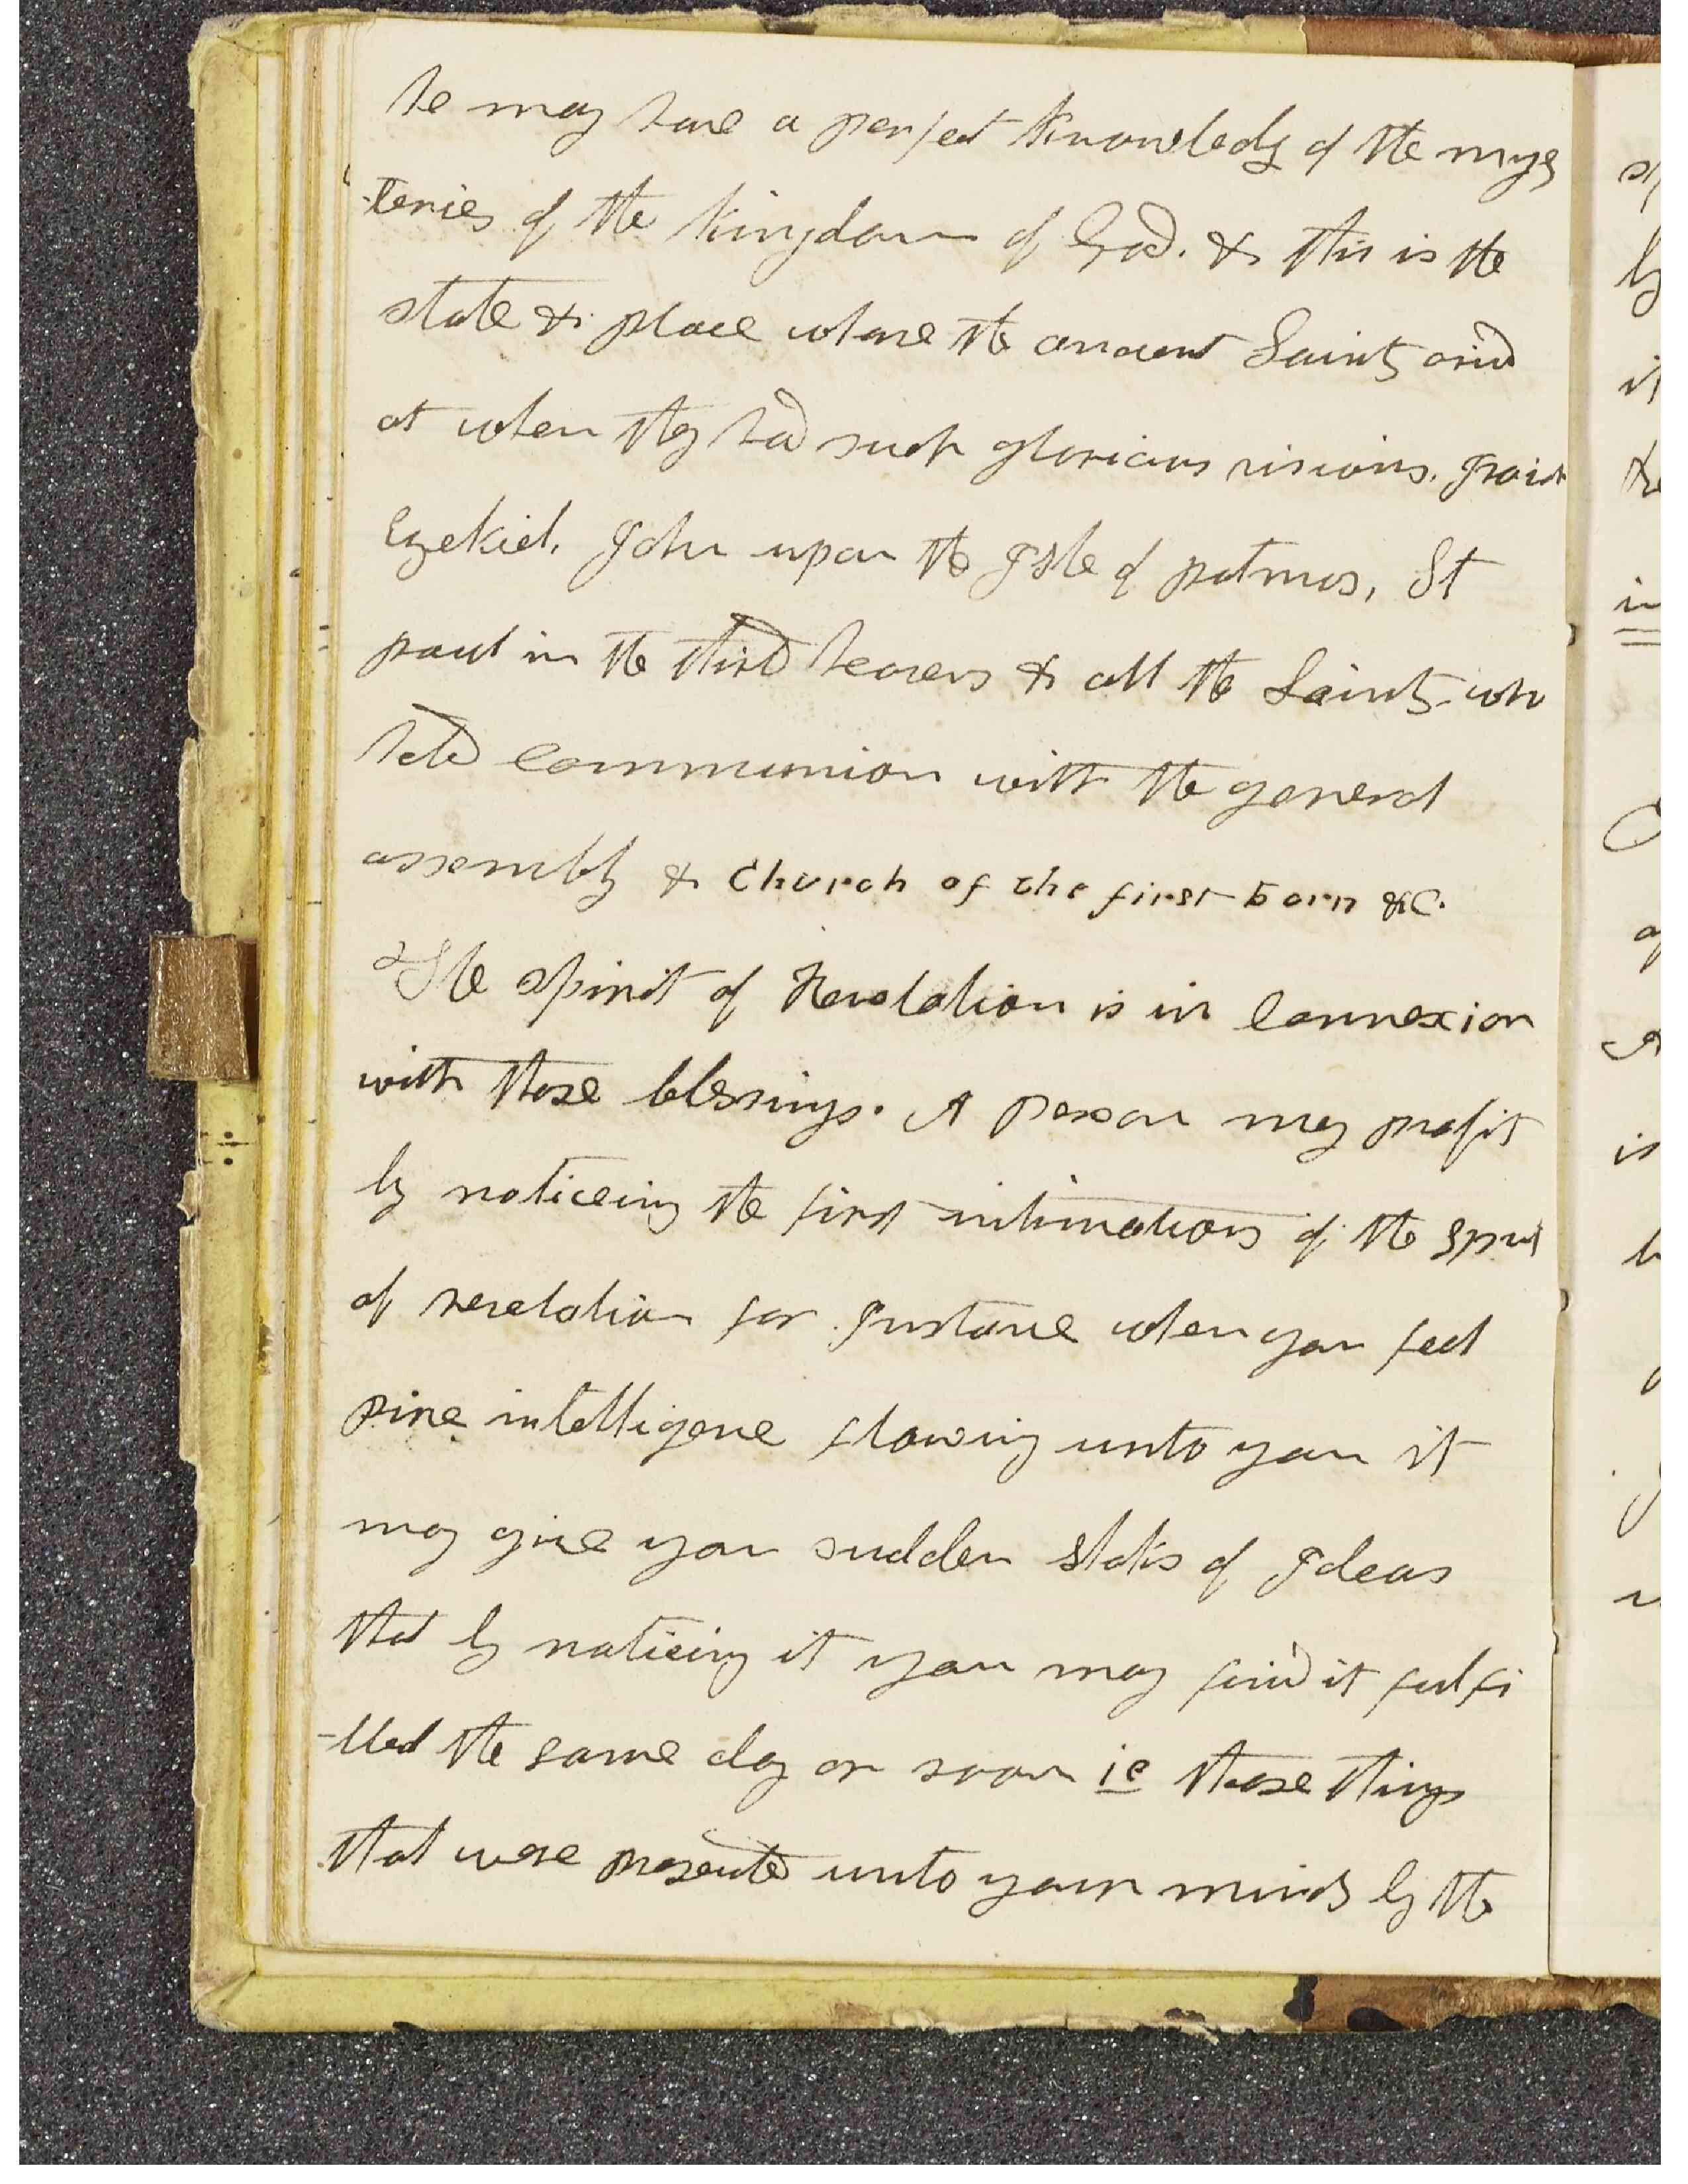 he may have a perfect knowledg of the mys
-teries of the kingdom of God. & this is the
state & place where the ancient Saints arivd
at when they had such glorious visions. Isaiah
Ezekiel. John upon the Isle of patmos, St
paul in the third heavens & all the Saints who
held communion with the general
assembly & Church of the first born &C.
The spirit of Revelation is in Connexion
with those blessings. A person may profit
by noticeing the first intimations of the spirit
of revelation for Instance when you feel
pure intelligence flowing unto you it
may give you sudden stroks of Ideas
that by noticeing it you may find it fulfi
-lled the same day or soon ie those things
that were presented unto your minds by the
in
is